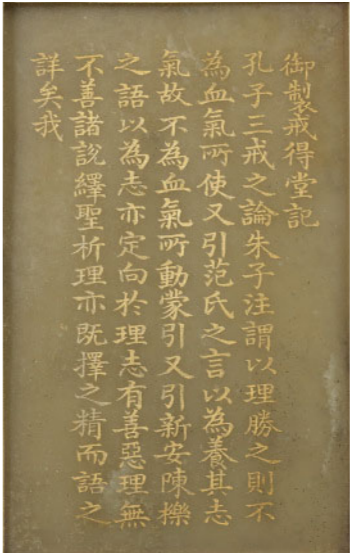 御製戒得堂記
孔子三戒之論朱子注謂以理勝之則不
為血氣所使又引范氏之言以為養其志
氣故不為血氣所動蒙引又引新安陳櫟
之語以為志亦定向於理志有善惡理無
不善諸說繹聖析理亦既擇之精而語之
詳矣我